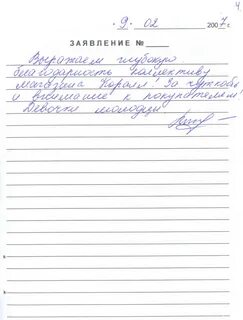 4
"9" 02 2007 г.
ЗАЯВЛЕНИЕ №
Выражаем глубокую
благодарность коллективу
магазина Коралл! За
и внимание к покупателям!
Девочки молодцы!